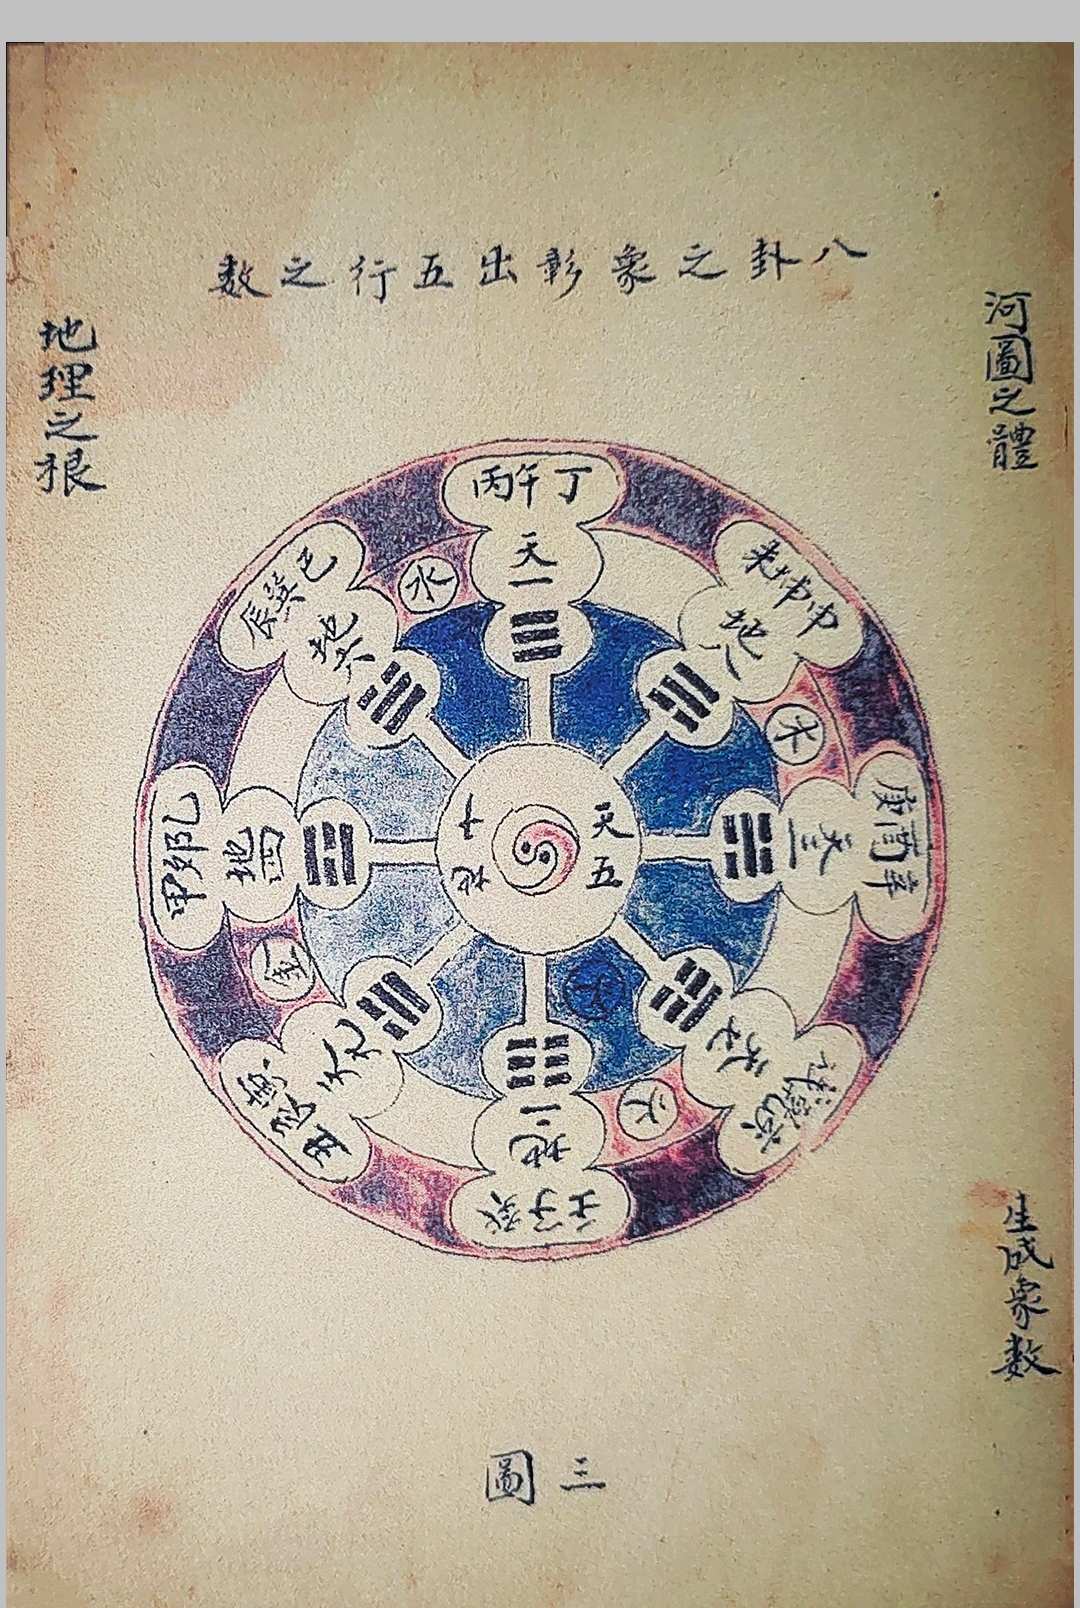 八卦之象彰出五行之數
河圖之體
地理之根
丙午丁
天一
水
未坤申
地八
木
庚酉辛
天三
戌乾亥
天七
火
壬子癸
地二
土
丑艮寅
天九
金
甲卯乙
地四
辰巽巳
地六
天五
地十
生成象數
三圖